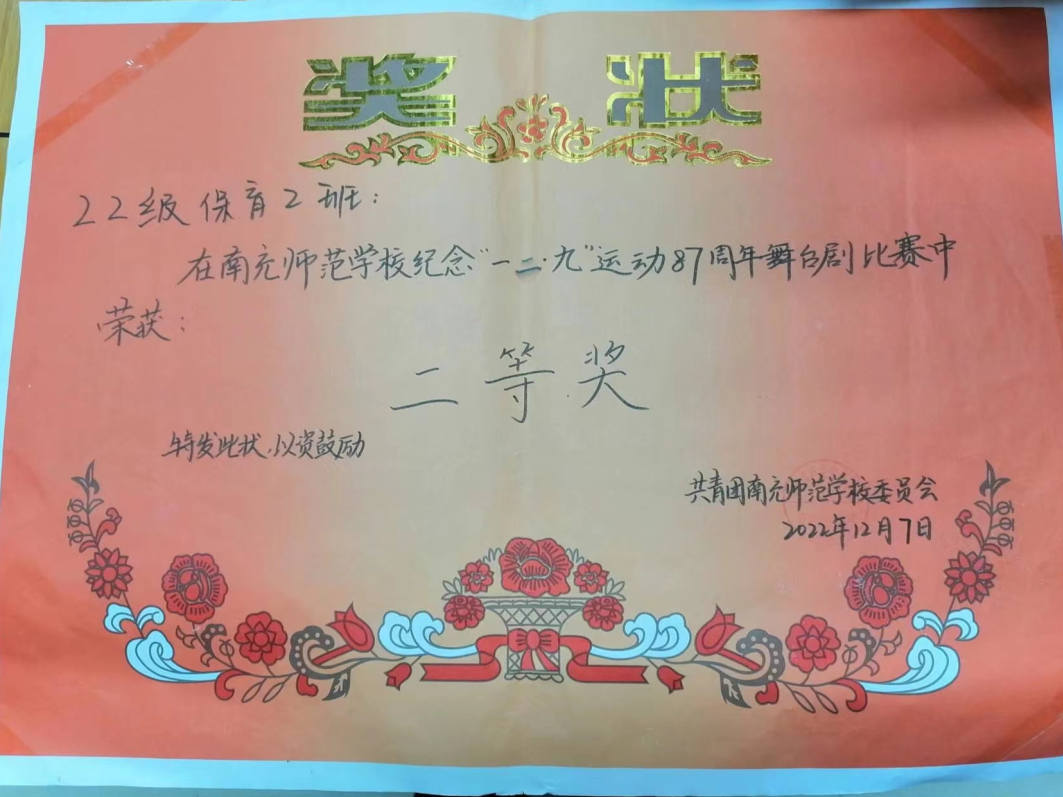 奖状
22级保育2班：
在南充师范学校纪念“一二·九”运动87周年舞台剧比赛中
荣获：
二等奖
特发此状，以资鼓励
共青团南充师范学校委员会
2022年12月7日